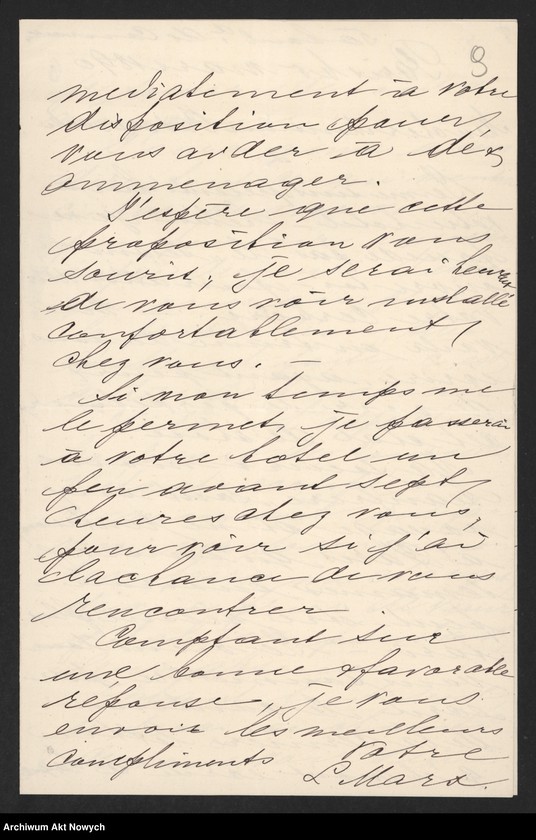 9
mediatement à votre
disposition pour
vous aider à dé=
ommenager.
J'espère que cette
proposition vous
sourit; je serai heureux
de vous voir installé
confortablement
chez vous. —
Si mon temps me
le permet, je passerai
à votre hotel un
peu avant sept
heures chez vous,
pour voir si j'ai
la chance de vous
rencontrer.
Comptant sur
une bonne & favorable
réponse, je vous
envoie les meilleurs
compliments Votre
L Marx.
Archiwum Akt Nowych